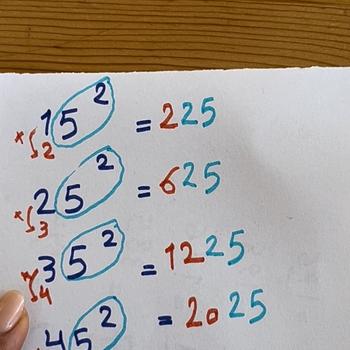 15² = 225
×2
25² = 625
×3
35² = 1225
×4
45² = 2025